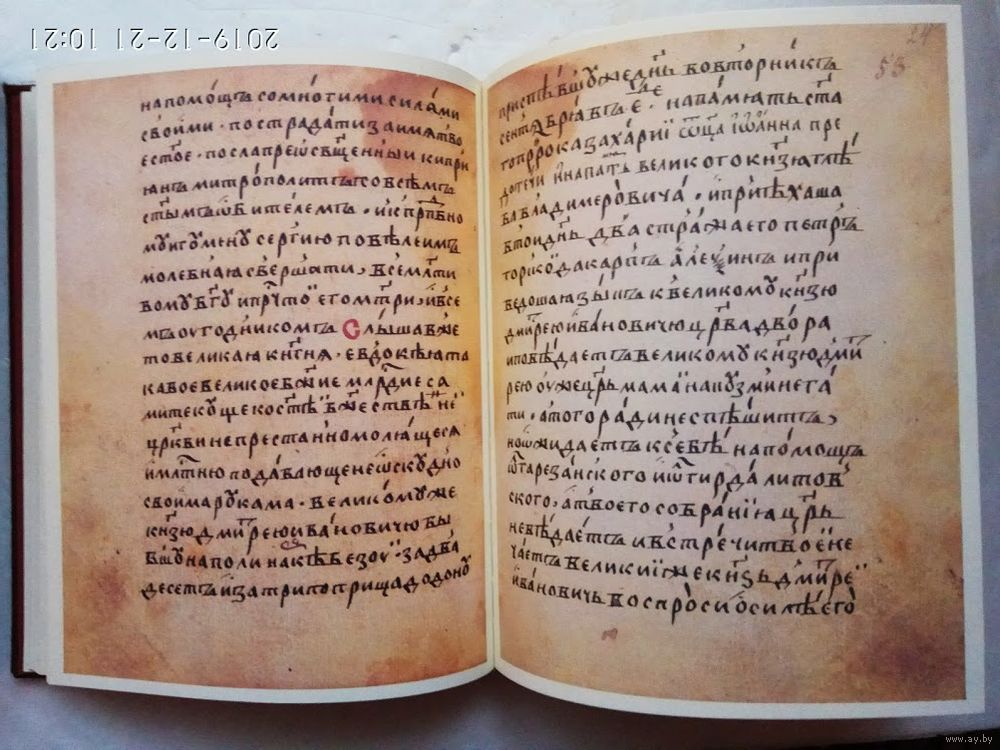 2019-12-21 10:21
напомо́щъ сомно́гими си́лами
свои́ми · пострада́ти заимѧ́ тво
есто́е · посла преѡсщ҃е́нныи кипри
ꙗнъ митропо́литъ по всѣмъ
ст҃ы́мъ ѡби́телемъ · и к прⷣпбно
му игумену се́ргию повѣле имъ
моле́бнаѧ сверша́ти, всеми́лти
вому бг҃у и прⷱтое его мт҃ри, и все
мъ оугодникомъ Слы́шавже
то великаѧ кнг҃нѧ · евдокѣѧ та
кавое великое бж҃ие млрⷭдие са
ми текуще кост҃ѣй бж҃естве́нѣй
цр҃кви непреста́нно молѧ́щесѧ
и́ млⷭтню пода́вающе неѡску́дно
своима рука́ма · Великому же
кнѧ҃зю дми́трею ива́новичю бы
вшу на поли на кѣ березоуй · за два
десетъ и за три поприща до дону
24
53
приспѣ́вшу же дн҃ь во вто́рникъ
сентѧбрѧ́ въ е҃ · на па́мѧть ст҃а
го прⷪ҇рока заха́рии ѿца іѡа́нна пре
доте́чи и́ на па́мѧть великого кнѧ҃зю глѣ
ба влади́меровича · и прїѣ́хаша
втои дн҃ь два стра́жа его петръ
торскои да карпъ але́ѯинъ и при
ведоша ꙗзы́къ к великому кнѧ҃зю
дми́трею ива́новичю цр҃ева двора
и повѣ́даетъ великому кнѧ҃зю дми́т
рею оу́же цр҃ь мама́й на кузми́не га́
ти · а того ра́ди не спѣши́тъ,
но ѡжида́етъ к себѣ́ на по́мощъ
ѿта реза́нского и́ ѿ гирда́ литов
ского, а твоего собра́нїѧ цр҃ь
невѣ́даетъ и встре́чи твоей не
ча́етъ Великий же кнѧ҃зь дми́трей
ива́новичь воспроси ѡ си́лѣ его
www.ay.by